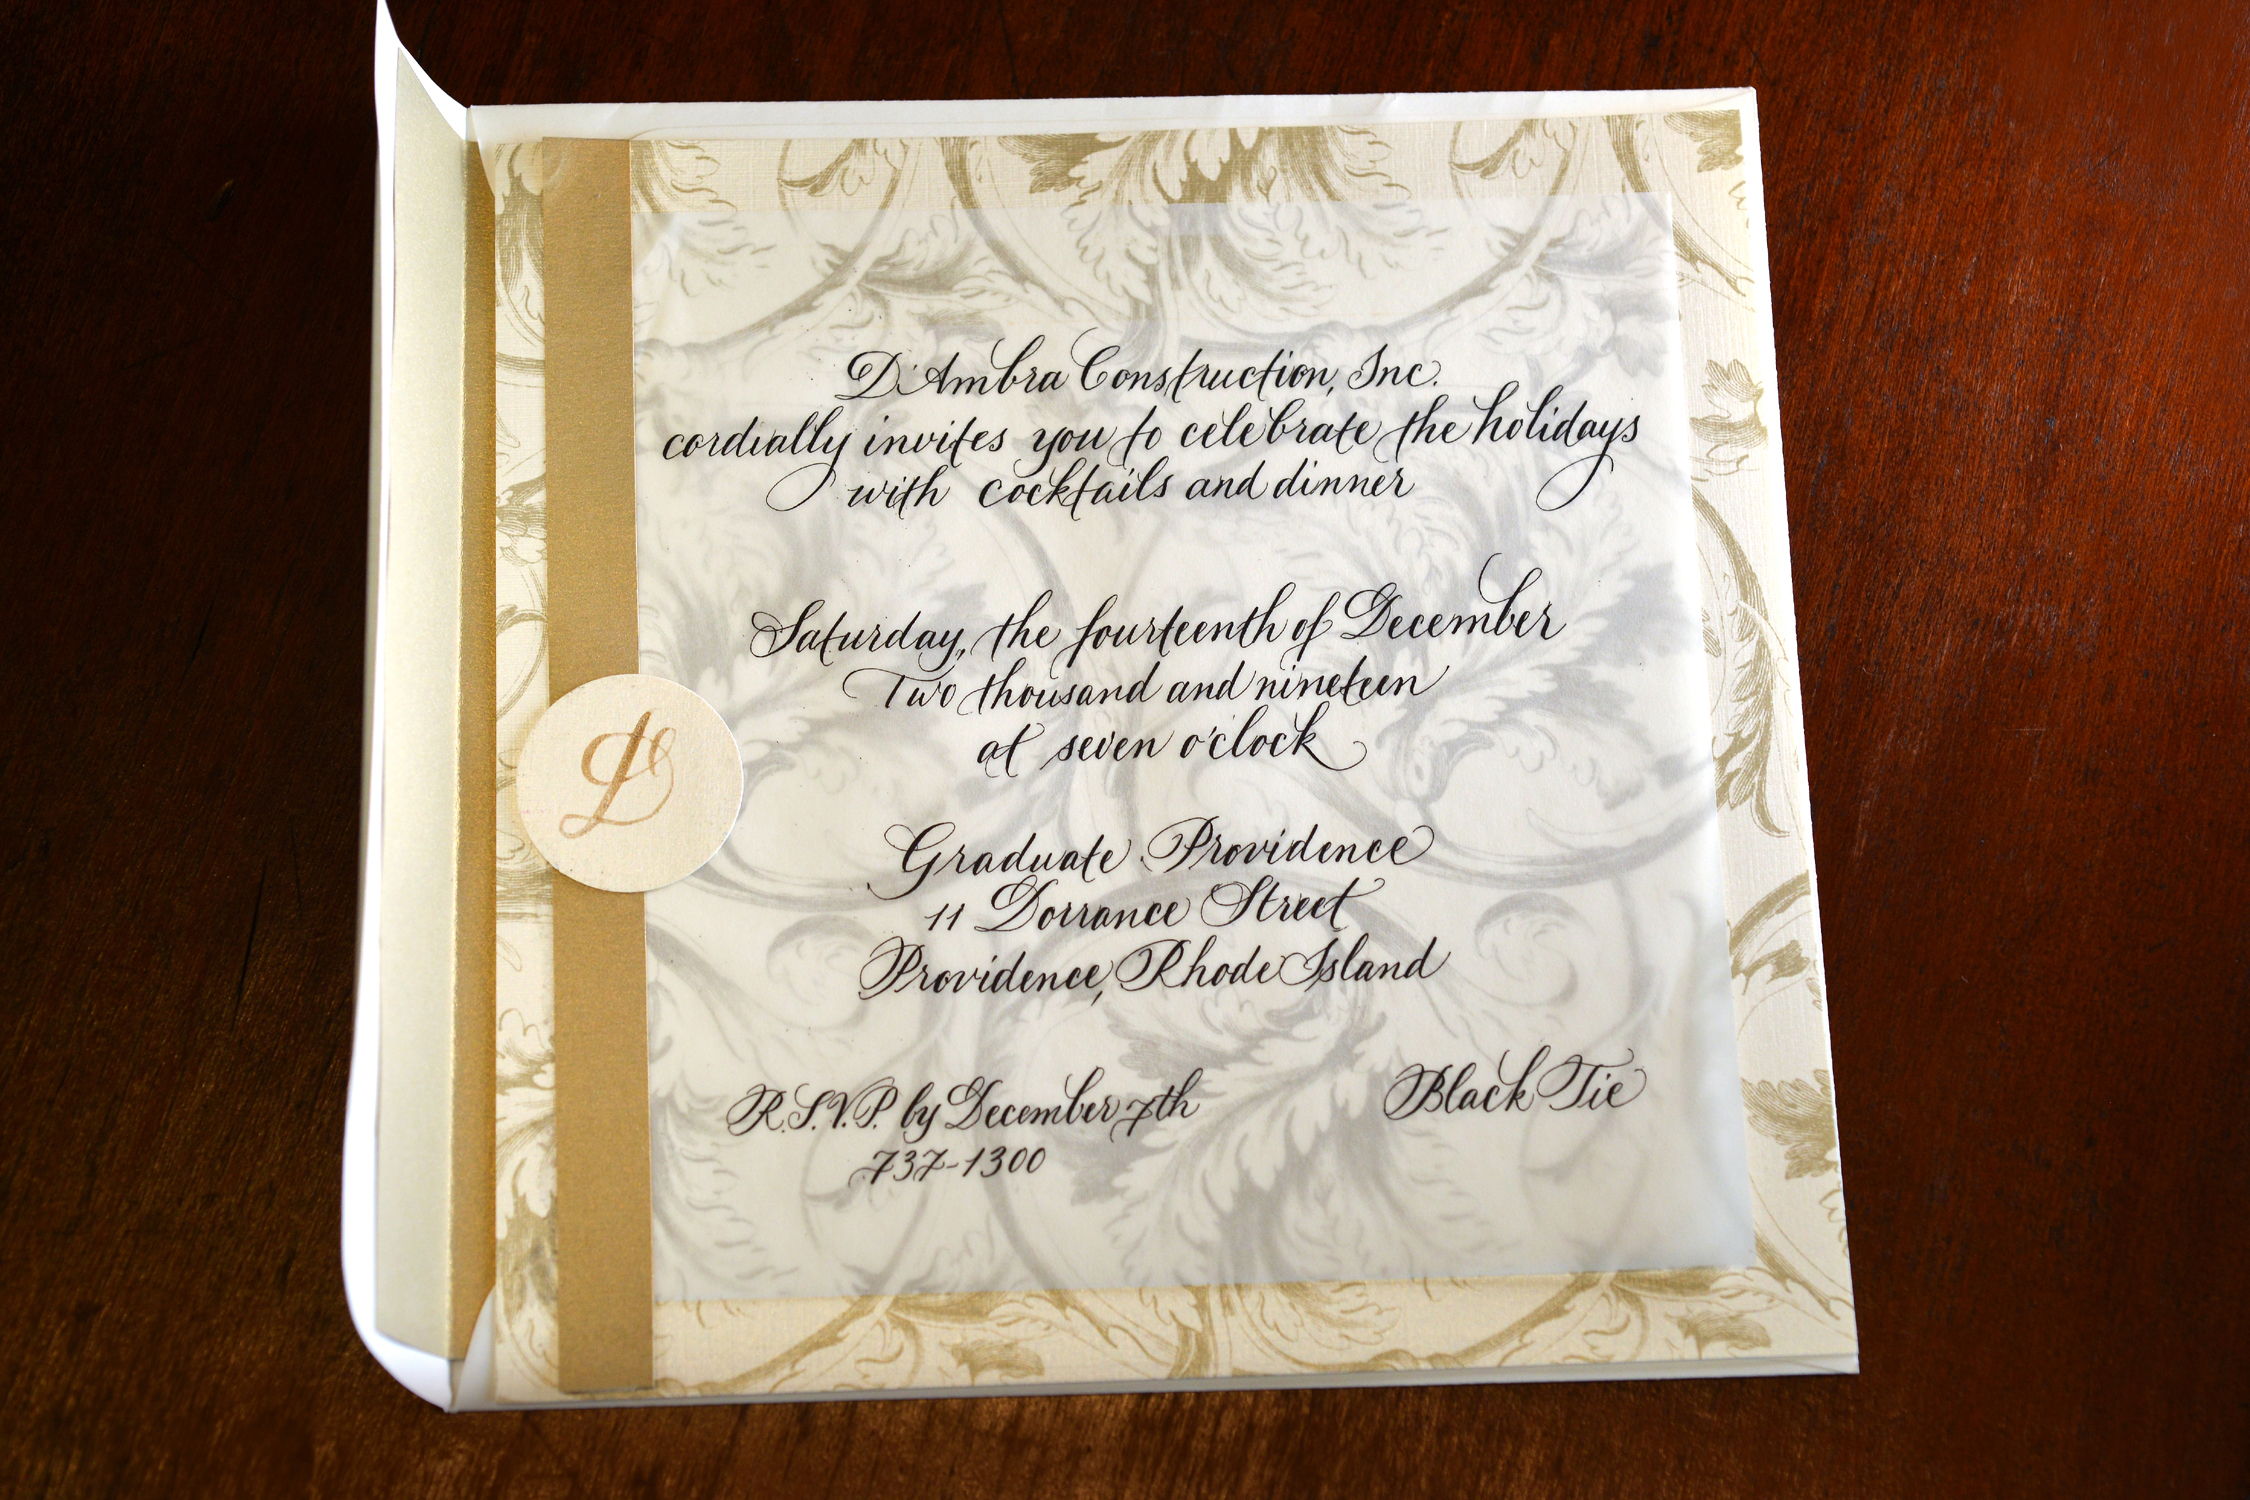 D'Ambra Construction, Inc.
cordially invites you to celebrate the holidays
with cocktails and dinner
Saturday, the fourteenth of December
Two thousand and nineteen
at seven o'clock
Graduate Providence
11 Dorrance Street
Providence, Rhode Island
R.S.V.P. by December 7th
737-1300
Black Tie
D